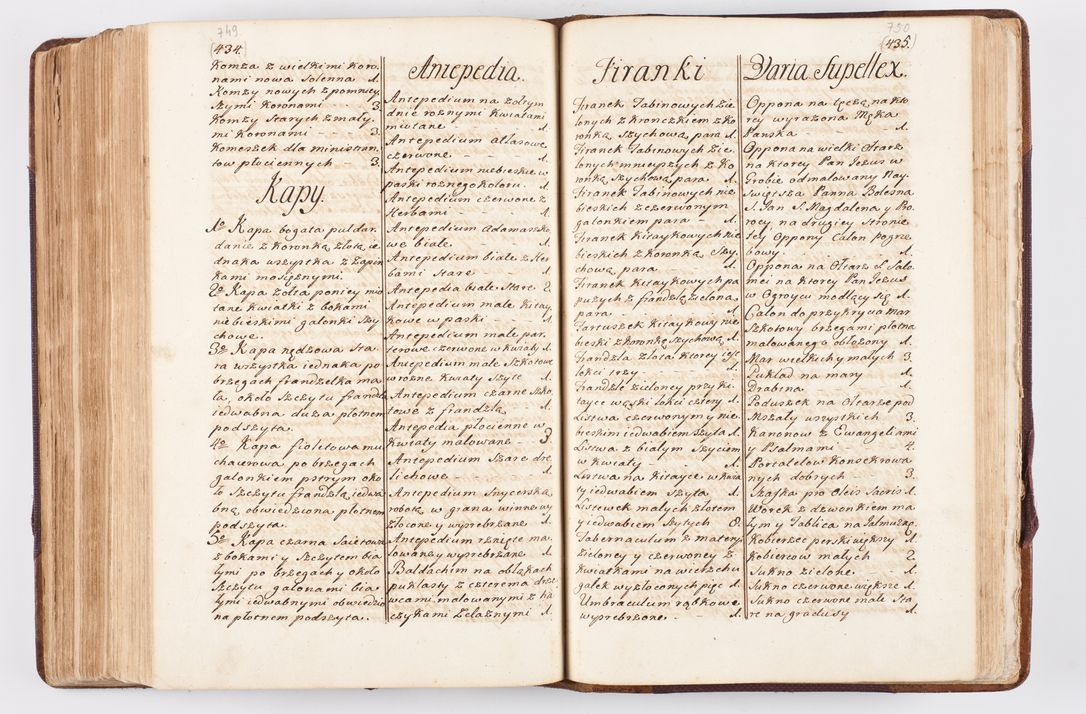 749.
(434.)
Komża z wielkimi koro-
nami nowa solenna 1.
Komży nowych z pomniey-
szymi koronami 3.
Komży starych z maly-
mi koronami 3.
Komeszek dla ministran-
tow płociennych 3.
Kapy.
1o Kapa bogata puldur
danie z koronką złotą ie-
dnaka wszystka z zapin-
kami mosiężnymi.
2o Kapa żołta poniey mio
tane kwiatki z bokami
niebieskimi galonki szy-
chowe.
3o Kapa nędzowa sta-
ra wszystka iednaka po
brzegach frandzelka ma-
la, około szczytu frandzla
iedwabna duża płotnem
podszyta.
4o Kapa fioletowamu
chairowa po brzegach
galonkiem pstrym oko-
ło szczytu frandzlą iedwa
bną obwiedziona płotnem
podszyta.
5o Kapa czarna saietowa
z bokami y szczytem bia-
łymi po brzegach y około
szczytu galonami bia-
łymi iedwabnymi obwiedzio
na płotnem podszyta.
Antepedia.
Antepedium na żołtym
dnie rożnymi kwiatami
miotane 1.
Antepedium atłasowe
czerwone 1.
Antepedium niebieskie w
paski rożnego koloru. 1.
Antepedium czerwone z
Herbami 1.
Antepedium adamaszko
we białe 1.
Antepedium białe z Her-
bami stare 1.
Antepedia białe stare 2.
Antepedium małe kitay-
kowe w paski 1.
Antepedium małe par-
terowe czerwone w kwiaty 1.
Antepedium małe szkotowe
w rożne kwiaty szyte 1.
Antepedium czarne szko
towe z frandzlą 1.
Antepedia płocienne w
kwiaty malowane 3.
Antepedium szare dre-
lichowe 1.
Antepedium snycerską
robotą w grana winne wy
złocone y wyprebrzane 1.
Antepedium rznięte ma-
lowane y wyprebrzane 1.
Baldachim na obłąkach
puklasty z czterema drze
wcami malowanymi z ha
czykami żelaznymi 1.
Firanki
Firanek Tabinowych zie
lonych z kronczkiem z ko
ronką szychową, para 1.
Firanek Tabinowych zie-
lonych mnieyszych z ko
ronką szychową para 1.
Firanek Tabinowych nie
bieskich z czerwonym
galonkiem para 1.
Firanek kitaykowych nie
bieskich z koronką szy-
chową para 1.
Firanek kitaykowych pa
puzych z frandzlą zieloną
para 1.
Fartuszek kitaykowy nie
bieski z koronką szychową 1.
Frandzla złota ktorey iest
łokci trzy 1.
Frandzle zieloney przy ki-
tayce wąski łokci cztery 1.
Listwa czerwonym y nie-
bieskim iedwabiem szyta 1.
Listwa z białym szyciem
w kwiaty 1.
Listwa na kitayce w kwia
ty iedwabiem szyta 1.
Listewek małych złotem
y iedwabiem szytych 8.
Tabernaculum z matery
zieloney y czerwoney z
kwiatkami na wierzchu
gałek wyzłoconych pięc 1.
Umbraculum rąbkowe
wyprebrzone 1.
750
(435.)
Varia Supellex.
Oppona na tęczą na kto-
rey wyrażona Męka
Panska 1.
Oppona na wielki Ołtarz
na ktorey Pan Jezus w
Grobie odmalowany Nay-
świętsza Panna Bolesna
S. Jan S. Magdalena y Pro-
rocy, na drugiey stronie
tey Oppony Całon pogrze
bowy. 1.
Oppona na Ołtarz S. Salo-
mei na ktorey Pan Jezus
w Ogroycu modlący się 1.
Całon do przykrycia Mar
szkotowy brzegami płotna
malowanego obłożony 1.
Mar wielkich y małych 3.
Pukład na mary 1.
Drabina 1.
Poduszek na Ołtarze pod
Mszały wszystkich 3.
Kanonow z Ewangeliami
y Psalmami 4.
Portatelow konsekrowa
nych dobrych 3.
Szafka pro Oleis Sacris 1.
Worek z dzwonkiem ma
łym y Tablica na Jałmużnę 1.
Kobierzec perski większy 1.
Kobiercow małych 2.
Sukno zielone 1.
Sukno czerwone większe 1.
Sukno czerwone małe sta
re na gradusy 1.